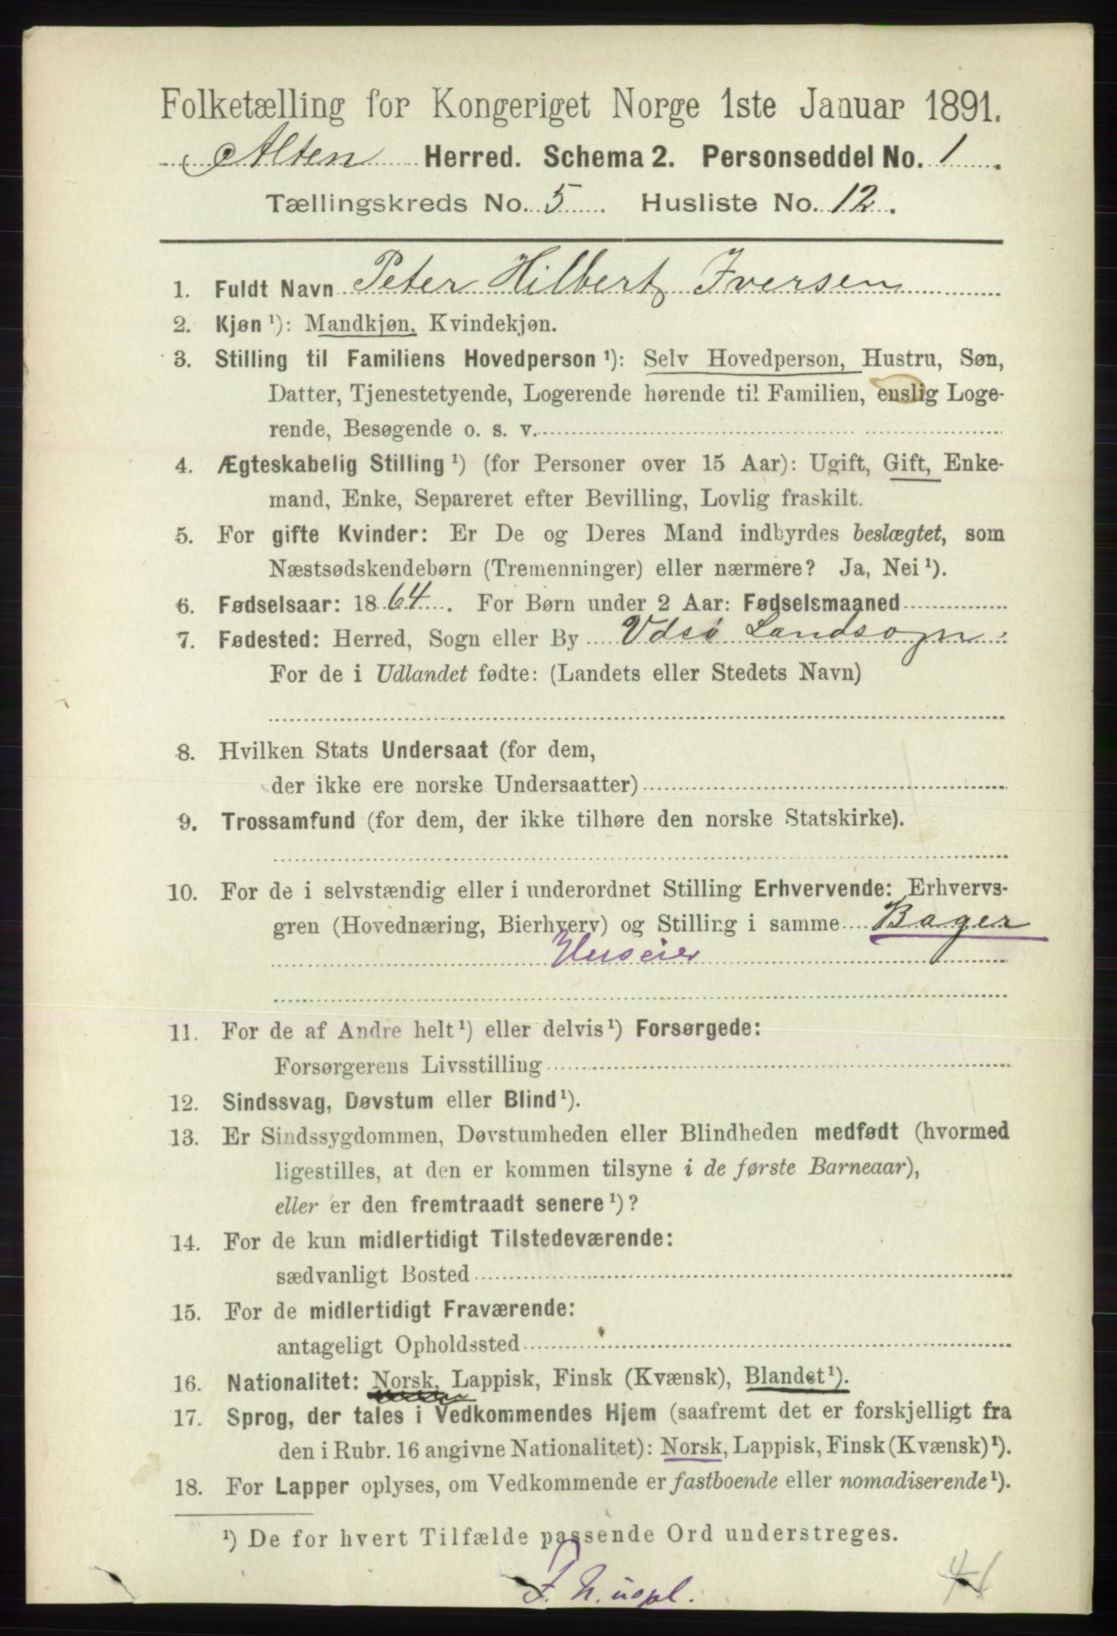 Folketælling for Kongeriget Norge 1ste Januar 1891.
Alten Herred. Schema 2. Personseddel No. 1.
Tællingskreds No. 5. Husliste No. 12.
1. Fuldt Navn Peter Hilbert Iversen
2. Kjøn ¹): Mandkjøn, Kvindekjøn.
3. Stilling til Familiens Hovedperson ¹): Selv Hovedperson, Hustru, Søn,
Datter, Tjenestetyende, Logerende hørende til Familien, enslig Loge-
rende, Besøgende o. s. v.
4. Ægteskabelig Stilling ¹) (for Personer over 15 Aar): Ugift, Gift, Enke-
mand, Enke, Separeret efter Bevilling, Lovlig fraskilt.
5. For gifte Kvinder: Er De og Deres Mand indbyrdes beslægtet, som
Næstsødskendebørn (Tremenninger) eller nærmere? Ja, Nei ¹).
6. Fødselsaar: 1864. For Børn under 2 Aar: Fødselsmaaned
7. Fødested: Herred, Sogn eller By Vdsø Landsogn
For de i Udlandet fødte: (Landets eller Stedets Navn)
8. Hvilken Stats Undersaat (for dem,
der ikke ere norske Undersaatter)
9. Trossamfund (for dem, der ikke tilhøre den norske Statskirke).
10. For de i selvstændig eller i underordnet Stilling Erhvervende: Erhvervs-
gren (Hovednæring, Bierhverv) og Stilling i samme Bager
Huseier
11. For de af Andre helt ¹) eller delvis ¹) Forsørgede:
Forsørgerens Livsstilling
12. Sindssvag, Døvstum eller Blind ¹).
13. Er Sindssygdommen, Døvstumheden eller Blindheden medfødt (hvormed
ligestilles, at den er kommen tilsyne i de første Barneaar),
eller er den fremtraadt senere ¹)?
14. For de kun midlertidigt Tilstedeværende:
sædvanligt Bosted
15. For de midlertidigt Fraværende:
antageligt Opholdssted
16. Nationalitet: Norsk, Lappisk, Finsk (Kvænsk), Blandet ¹).
17. Sprog, der tales i Vedkommendes Hjem (saafremt det er forskjelligt fra
den i Rubr. 16 angivne Nationalitet): Norsk, Lappisk, Finsk (Kvænsk) ¹).
18. For Lapper oplyses, om Vedkommende er fastboende eller nomadiserende ¹).
¹) De for hvert Tilfælde passende Ord understreges.